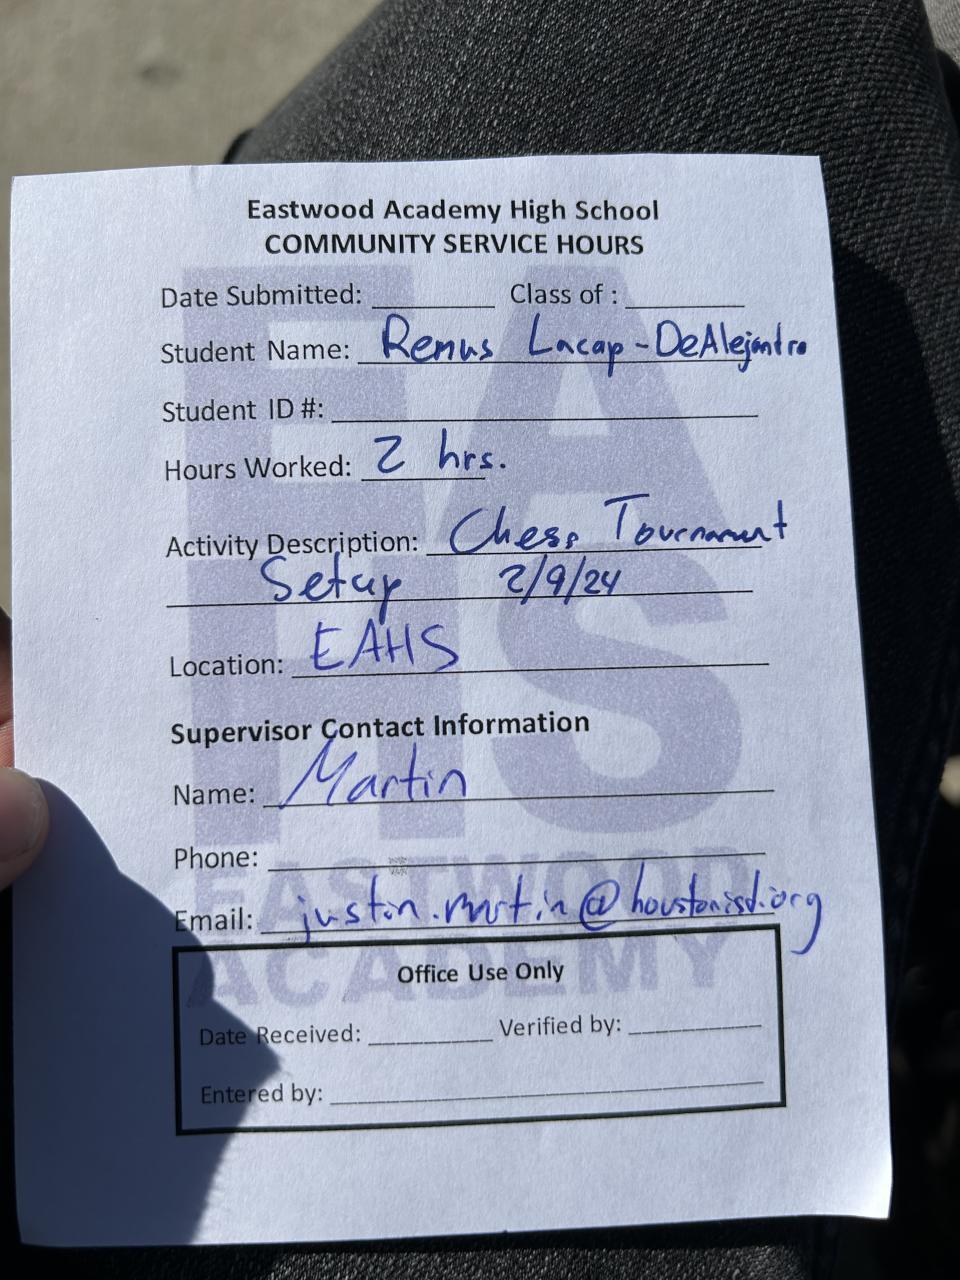 Eastwood Academy High School
COMMUNITY SERVICE HOURS
Date Submitted: ________ Class of : ________
Student Name: Remus Lacap-DeAlejandro
Student ID #: ________
Hours Worked: 2 hrs.
Activity Description: Chess Tournament
Setup 2/9/24
Location: EAHS
Supervisor Contact Information
Name: Martin
Phone: ________
Email: justin.martin@houstonisd.org
Office Use Only
Date Received: ________ Verified by: ________
Entered by: ________
EA
HS
EASTWOOD
ACADEMY